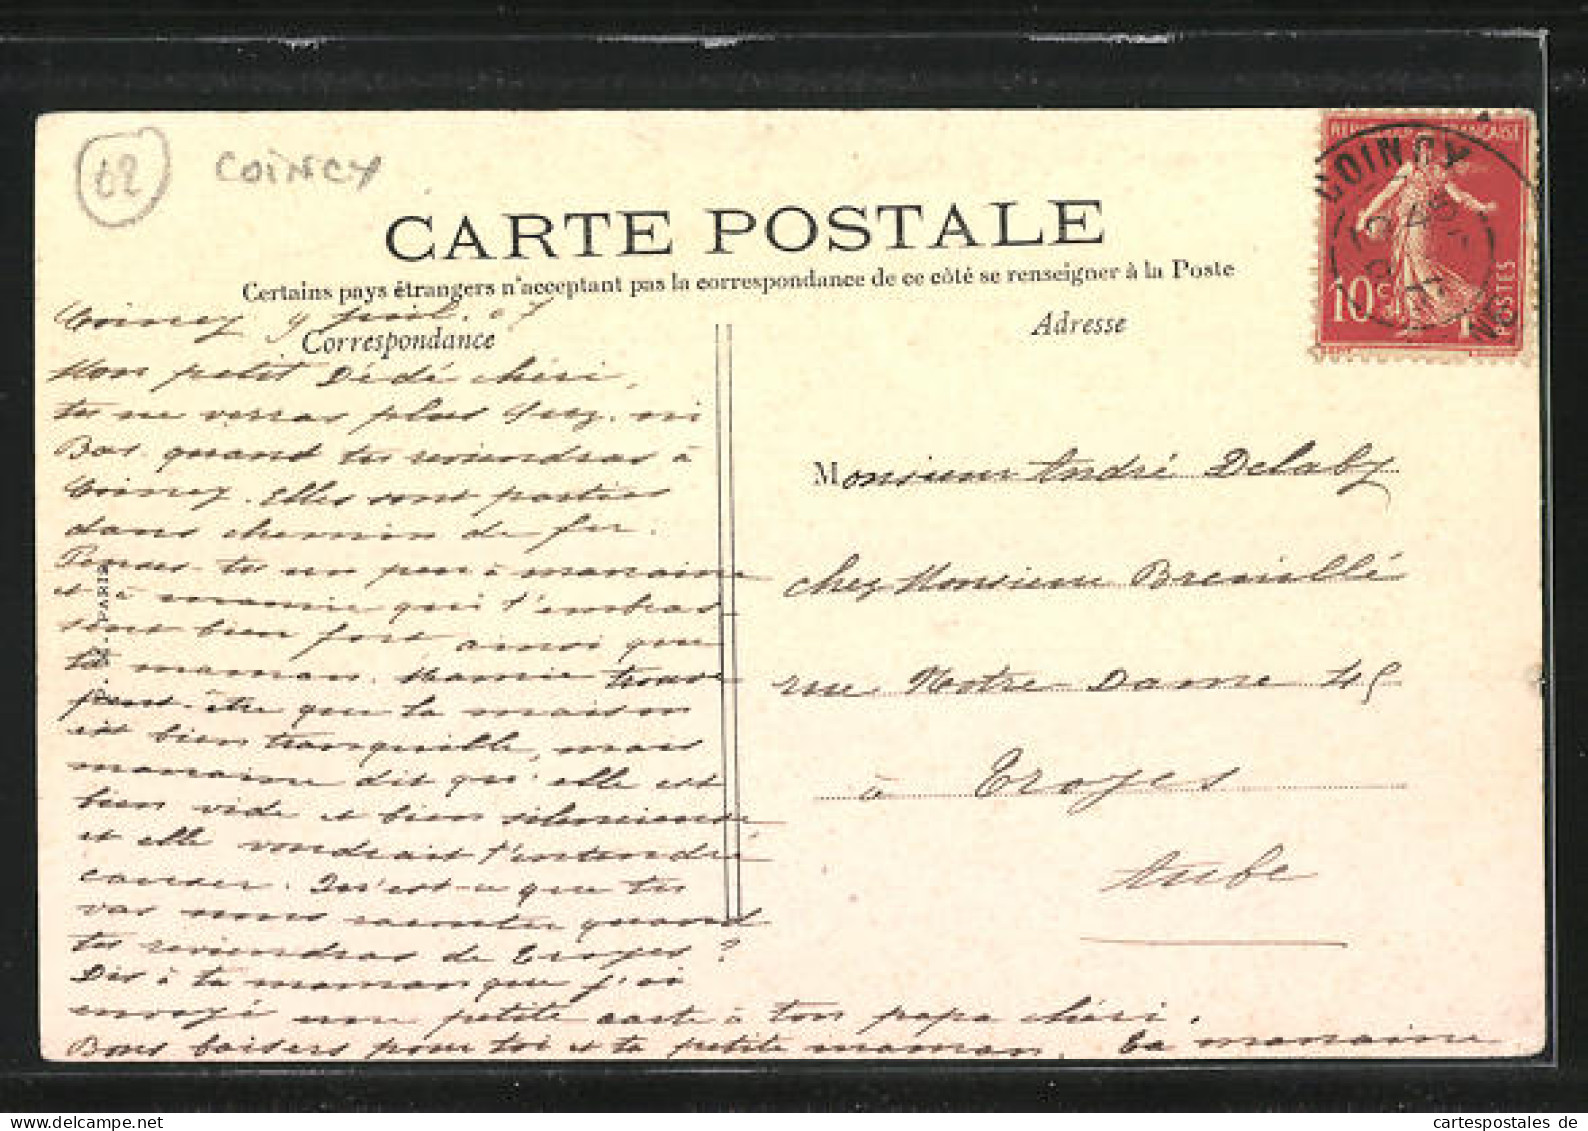 62 COINCY
CARTE POSTALE
Certains pays étrangers n'acceptant pas la correspondance de ce côté se renseigner à la Poste
Coincy 9 07
Correspondance
Mon petit Dédé chéri,
tu ne verras plus ni
Bas quand tu reviendras à
Coincy. Elles sont parties
dans chemin de fer.
Penses tu un peu à manaine
et à mamie qui t'embras
sent bien fort ainsi que
ta maman. Mamie trouve
peut-être que la maison
est bien tranquille, mais
manaine dit qu'elle est
bien vide et bien silencieuse
et elle voudrait t'entendre
causer. Qu'est-ce que tu
vas nous raconter quand
tu reviendras de Troyes ?
Dis à ta maman que j'ai
envoyé une petite carte à ton papa chéri.
Bons baisers pour toi et ta petite maman. Ta manaine
PARIS
Adresse
Monsieur André Delaby
chez Monsieur Breuillé
rue Notre Dame 45
à Troyes
Aube
REPUBLIQUE FRANÇAISE
10 c
POSTES
COINCY
07
cartespostales de